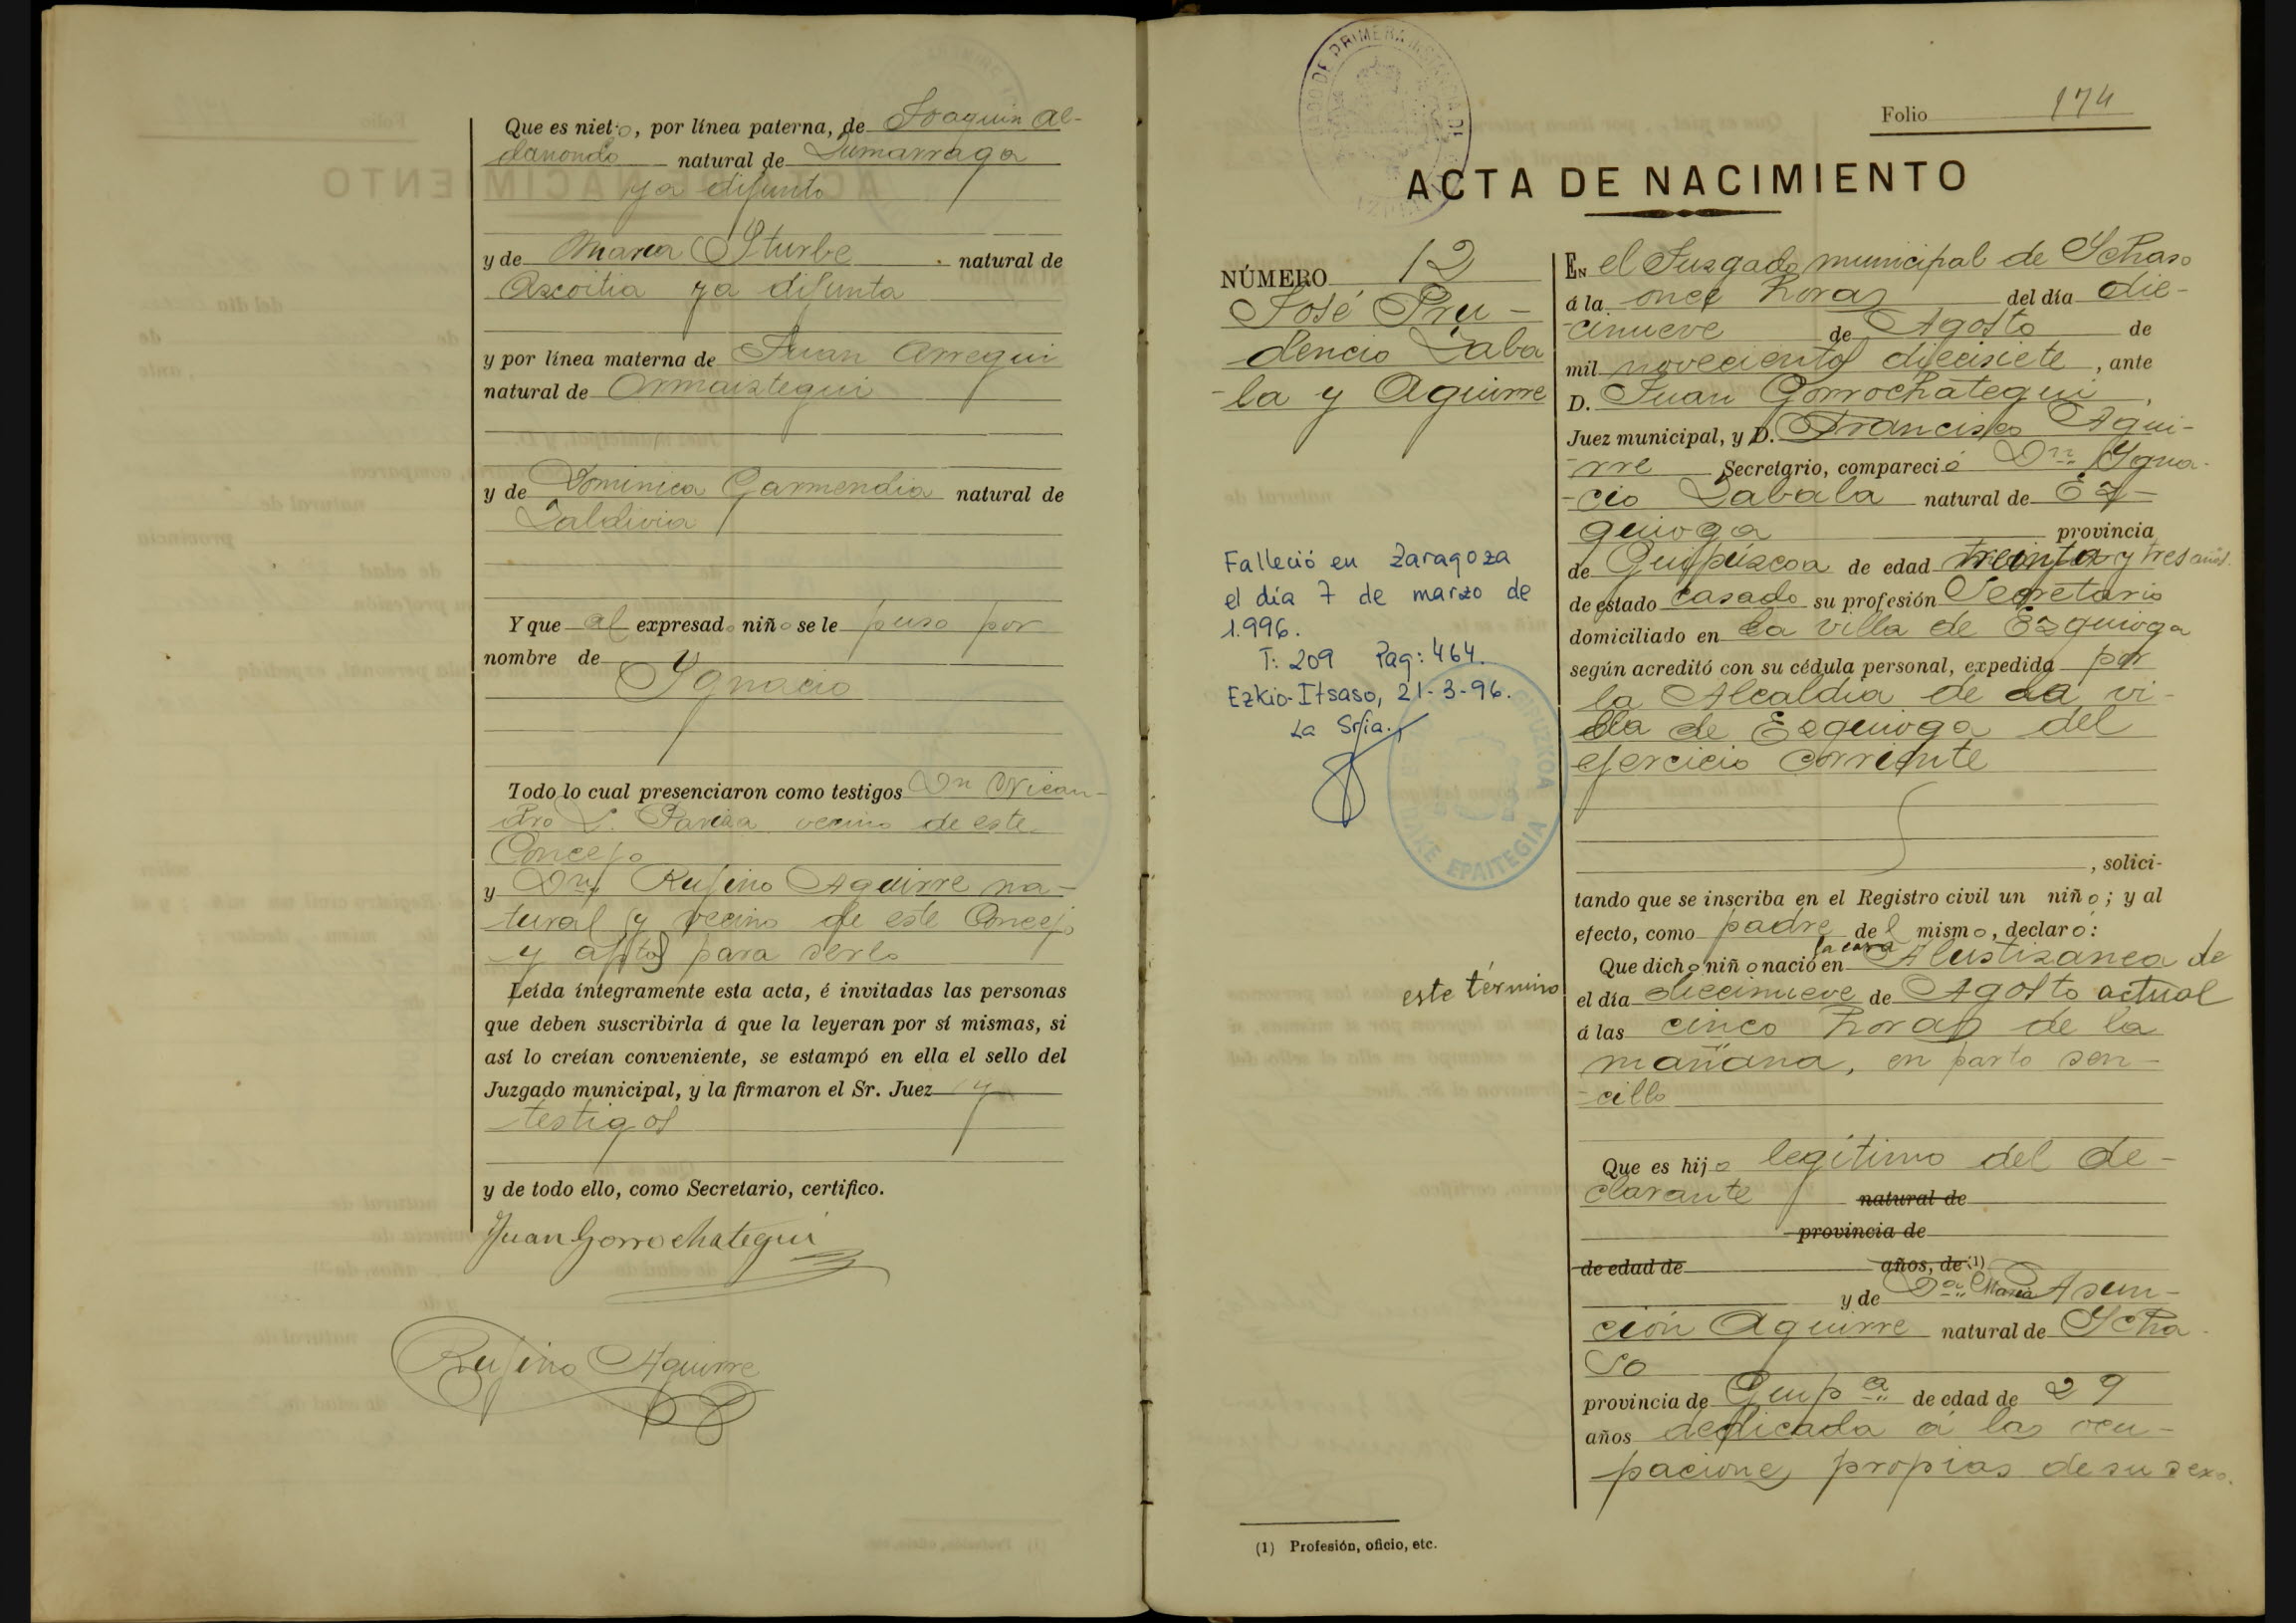 Que es nieto, por línea paterna, de Joaquin Al-
danondo natural de Zumarraga
ya difunto
y de Maria Yturbe natural de
Azcoitia ya difunta
y por línea materna de Juan Arregui
natural de Ormaiztegui
y de Dominica Garmendia natural de
Zaldivia
Y que al expresado niño se le puso por
nombre de
Ygnacio
Todo lo cual presenciaron como testigos Dn Nican-
dro L. vecino de este
Concejo
y Dn Rufino Aguirre na-
tural y vecino de este Concejo
y aptos para serlo
Leída íntegramente esta acta, é invitadas las personas
que deben suscribirla á que la leyeran por sí mismas, si
así lo creían conveniente, se estampó en ella el sello del
Juzgado municipal, y la firmaron el Sr. Juez y
testigos
y de todo ello, como Secretario, certifico.
Juan Gorrochategui
Rufino Aguirre
Folio 174
ACTA DE NACIMIENTO
NÚMERO 12
José Pru-
dencio Zaba
-la y Aguirre
Falleció en Zaragoza
el día 7 de marzo de
1.996.
T: 209 Pag: 464.
Ezkio-Itsaso, 21-3-96.
La Sria.
GIPUZKOA
BAKE EPAITEGIA
este término
EN el Juzgado municipal de Ychaso
á la once horas del día die-
-cinueve de Agosto de
mil novecientos diecisiete, ante
D. Juan Gorrochategui,
Juez municipal, y D. Francisco Agui-
-rre Secretario, compareció Dn Ygna-
-cio Zabala natural de Ez-
quioga provincia
de Guipúzcoa de edad treinta y tres años
de estado casado su profesión Secretario
domiciliado en la villa de Ezquioga
según acreditó con su cédula personal, expedida por
la Alcaldia de la vi-
lla de Ezquioga del
ejercicio corriente
, solici-
tando que se inscriba en el Registro civil un niño; y al
efecto, como padre del mismo, declaró:
Que dicho niño nació en la casa Alustizanea de
el día diecinueve de Agosto actual
á las cinco horas de la
mañana, en parto sen-
-cillo
Que es hijo legítimo del de-
clarante natural de
provincia de
de edad de años, de (1)
y de Dª Maria Asun-
ción Aguirre natural de Ycha-
so
provincia de Guipª de edad de 29
años dedicada á las ocu-
paciones propias de su sexo.
(1) Profesión, oficio, etc.